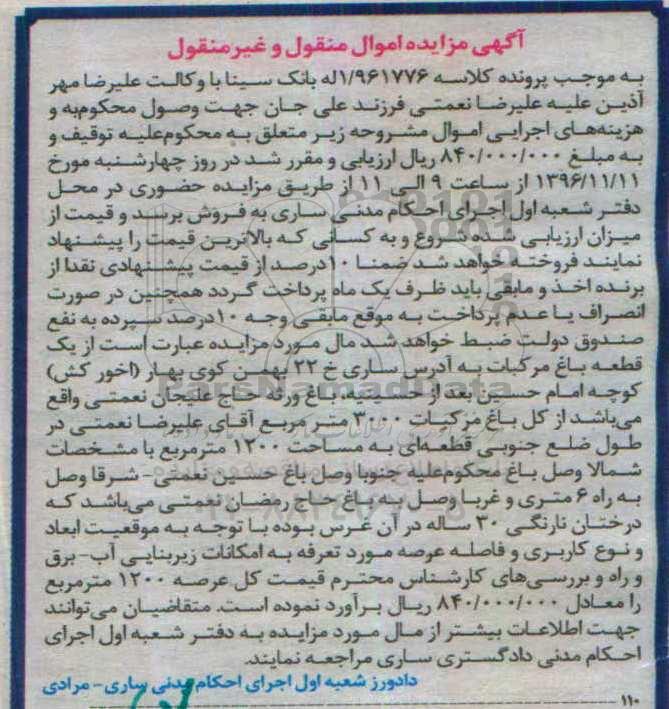 آگهی مزایده اموال منقول و غیرمنقول
به موجب پرونده کلاسه ۱/۹۶۱۷۷۶له بانک سینا با وکالت علیرضا مهر
آذین علیه علیرضا نعمتی فرزند علی جان جهت وصول محکوم‌به و
هزینه‌های اجرایی اموال مشروحه زیر متعلق به محکوم‌علیه توقیف و
به مبلغ ۸۴۰/۰۰۰/۰۰۰ ریال ارزیابی و مقرر شد در روز چهارشنبه مورخ
۱۳۹۶/۱۱/۱۱ از ساعت ۹ الی ۱۱ از طریق مزایده حضوری در محل
دفتر شعبه اول اجرای احکام مدنی ساری به فروش برسد و قیمت از
میزان ارزیابی شده شروع و به کسانی که بالاترین قیمت را پیشنهاد
نمایند فروخته خواهد شد ضمنا ۱۰درصد از قیمت پیشنهادی نقدا از
برنده اخذ و مابقی باید ظرف یک ماه پرداخت گردد همچنین در صورت
انصراف یا عدم پرداخت به موقع مابقی وجه ۱۰درصد سپرده به نفع
صندوق دولت ضبط خواهد شد مال مورد مزایده عبارت است از یک
قطعه باغ مرکبات به آدرس ساری خ ۲۲ بهمن کوی بهار (اخور کش)
کوچه امام حسین بعد از حسینیه، باغ ورثه حاج علیجان نعمتی واقع
می‌باشد از کل باغ مرکبات ۳۰۰۰ متر مربع آقای علیرضا نعمتی در
طول ضلع جنوبی قطعه‌ای به مساحت ۱۲۰۰ مترمربع با مشخصات
شمالا وصل باغ محکوم‌علیه جنوبا وصل باغ حسین نعمتی- شرقا وصل
به راه ۶ متری و غربا وصل به باغ حاج رمضان نعمتی می‌باشد که
درختان نارنگی ۳۰ ساله در آن غرس بوده با توجه به موقعیت ابعاد
و نوع کاربری و فاصله عرصه مورد تعرفه به امکانات زیربنایی آب-برق
و راه و بررسی‌های کارشناس محترم قیمت کل عرصه ۱۲۰۰ مترمربع
را معادل ۸۴۰/۰۰۰/۰۰۰ ریال برآورد نموده است. متقاضیان می‌توانند
جهت اطلاعات بیشتر از مال مورد مزایده به دفتر شعبه اول اجرای
احکام مدنی دادگستری ساری مراجعه نمایند.
دادورز شعبه اول اجرای احکام مدنی ساری- مرادی
۱۱۰
ParsNamadData